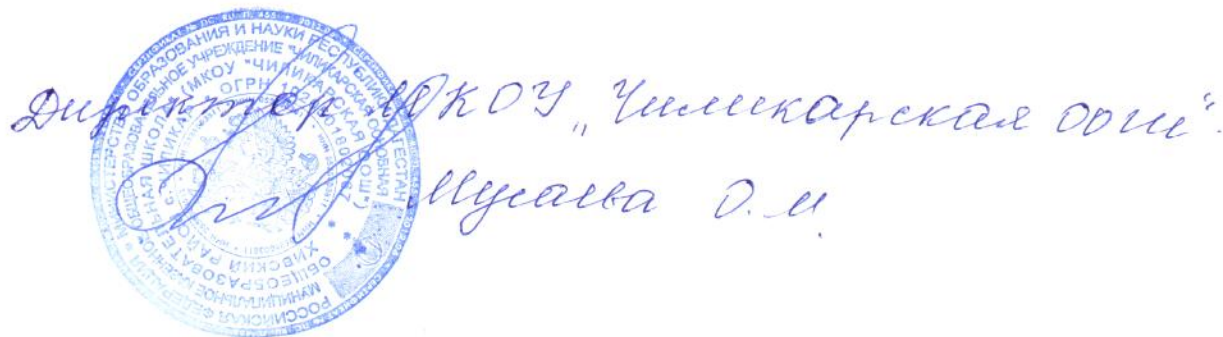 Директор МКОУ „Чиликарская ООШ“.
Мусаева О.М.
РОССИЙСКАЯ ФЕДЕРАЦИЯ • МИНИСТЕРСТВО ОБРАЗОВАНИЯ И НАУКИ РЕСПУБЛИКИ ДАГЕСТАН
МУНИЦИПАЛЬНОЕ КАЗЕННОЕ ОБЩЕОБРАЗОВАТЕЛЬНОЕ УЧРЕЖДЕНИЕ "ЧИЛИКАРСКАЯ
ОБЩЕОБРАЗОВАТЕЛЬНАЯ ШКОЛА" (МКОУ "ЧИЛИКАРСКАЯ ООШ")
ХИВСКИЙ РАЙОН
ОГРН